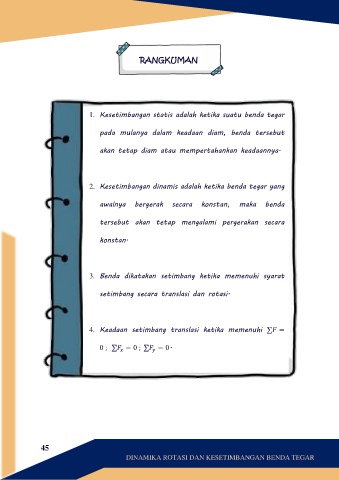 RANGKUMAN
1. Kesetimbangan statis adalah ketika suatu benda tegar
pada mulanya dalam keadaan diam, benda tersebut
akan tetap diam atau mempertahankan keadaannya.
2. Kesetimbangan dinamis adalah ketika benda tegar yang
awalnya bergerak secara konstan, maka benda
tersebut akan tetap mengalami pergerakan secara
konstan.
3. Benda dikatakan setimbang ketika memenuhi syarat
setimbang secara translasi dan rotasi.
4. Keadaan setimbang translasi ketika memenuhi ∑F =
0 ; ∑Fₓ = 0 ; ∑Fᵧ = 0.
45
DINAMIKA ROTASI DAN KESETIMBANGAN BENDA TEGAR